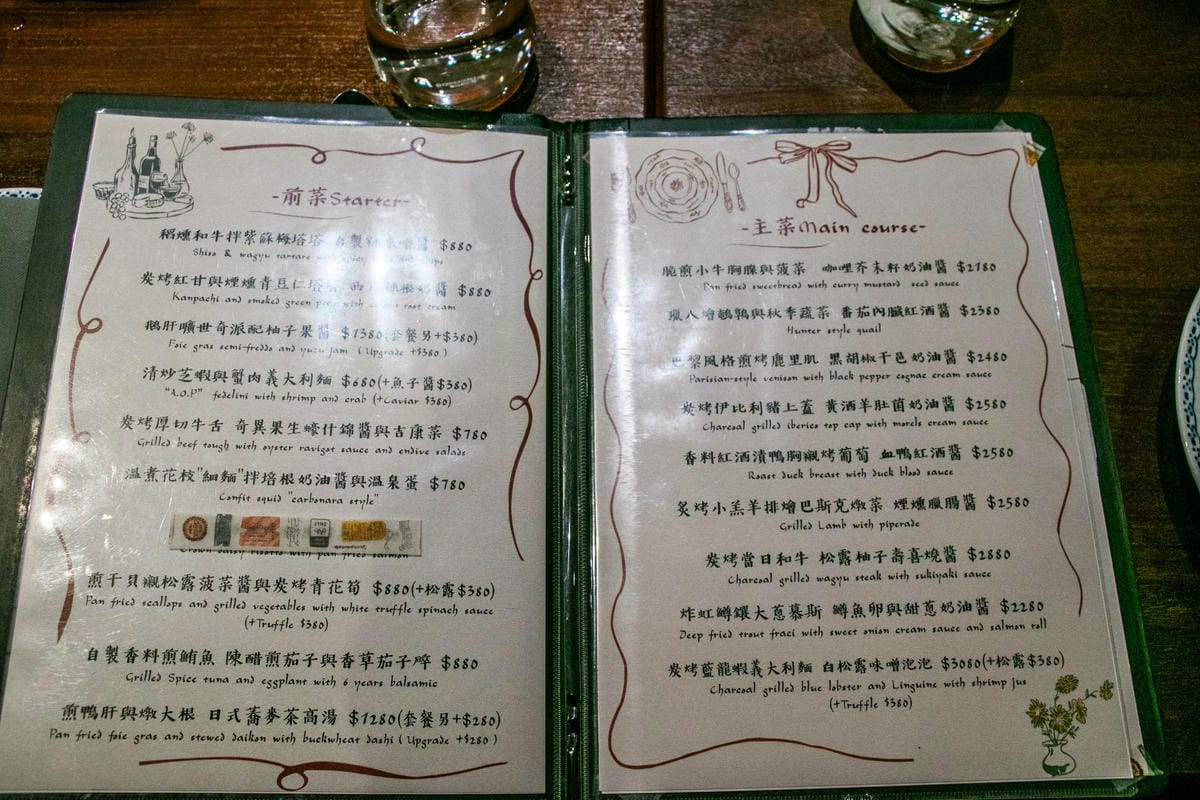 -前菜Starter-
稻燻和牛拌紫蘇梅塔塔 $880
Shiso & wagyu tartare
炭烤紅甘與煙燻青豆仁塔塔 $880
Kanpachi and smoked green root cream
鵝肝曠世奇派配柚子果醬 $1380(套餐另+$380)
Foie gras semi-freddo and yuzu jam (Upgrade +$380)
清炒芝蝦與蟹肉義大利麵 $680(+魚子醬$380)
"A.O.P" fedelini with shrimp and crab (+Caviar $380)
炭烤厚切牛舌 奇異果生蠔什錦醬與吉康菜 $780
Grilled beef tough with oyster ravigot sauce and endive salads
溫煮花枝"細麵"拌培根奶油醬與溫泉蛋 $780
Confit squid "carbonara style"
Crown daisy risotto with pan fried salmon
煎干貝襯松露菠菜醬與炭烤青花筍 $880(+松露$380)
Pan fried scallops and grilled vegetables with white truffle spinach sauce
(+Truffle $380)
自製香料煎鮪魚 陳醋煎茄子與香草茄子啐 $880
Grilled Spice tuna and eggplant with 6 years balsamic
煎鴨肝與燉大根 日式蕎麥茶高湯 $1280(套餐另+$280)
Pan fried foie gras and stewed daikon with buckwheat dashi (Upgrade +$280)
-主菜Main course-
脆煎小牛胸腺與菠菜 咖哩芥末籽奶油醬 $2180
Pan fried sweetbread with curry mustard seed sauce
獵人燴鵪鶉與秋季蔬菜 番茄內臟紅酒醬 $2380
Hunter style quail
巴黎風格煎烤鹿里肌 黑胡椒干邑奶油醬 $2480
Parisian-style venison with black pepper cognac cream sauce
炭烤伊比利豬上蓋 黃酒羊肚菌奶油醬 $2580
Charcoal grilled iberico top cap with morels cream sauce
香料紅酒漬鴨胸襯烤葡萄 血鴨紅酒醬 $2580
Roast duck breast with duck blood sauce
炙烤小羔羊排燴巴斯克燉菜 煙燻臘腸醬 $2580
Grilled Lamb with piperade
炭烤當日和牛 松露柚子壽喜燒醬 $2880
Charcoal grilled wagyu steak with sukiyaki sauce
炸虹鱒鑲大蔥慕斯 鱒魚卵與甜蔥奶油醬 $2280
Deep fried trout fraci with sweet onion cream sauce and salmon roll
炭烤藍龍蝦義大利麵 白松露味噌泡泡 $3080(+松露$380)
Charcoal grilled blue lobster and Linguine with shrimp jus
(+Truffle $380)